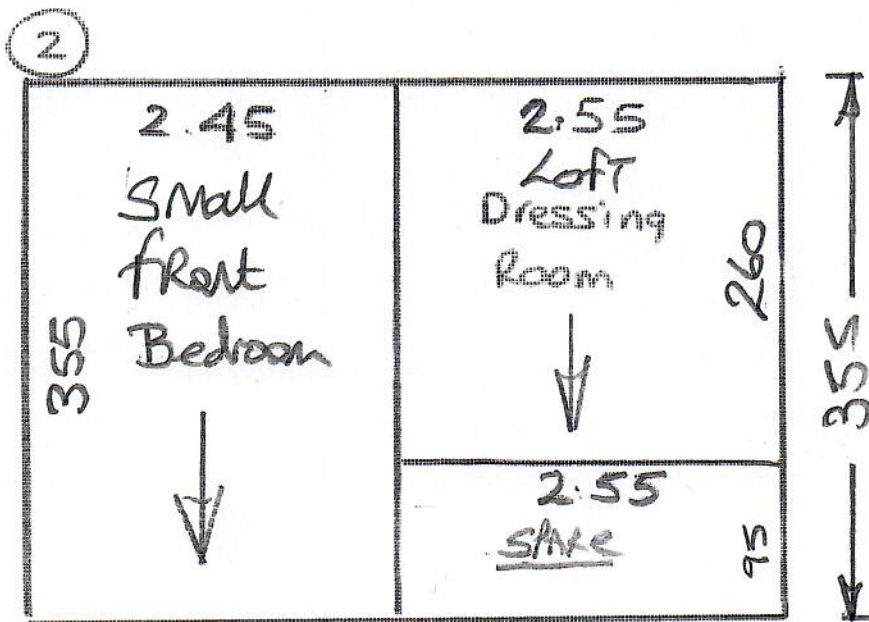 2
2.45
Small
fRont
Bedroom
355
2.55
Loft
Dressing
Room
260
2.55
SPARe
95
355